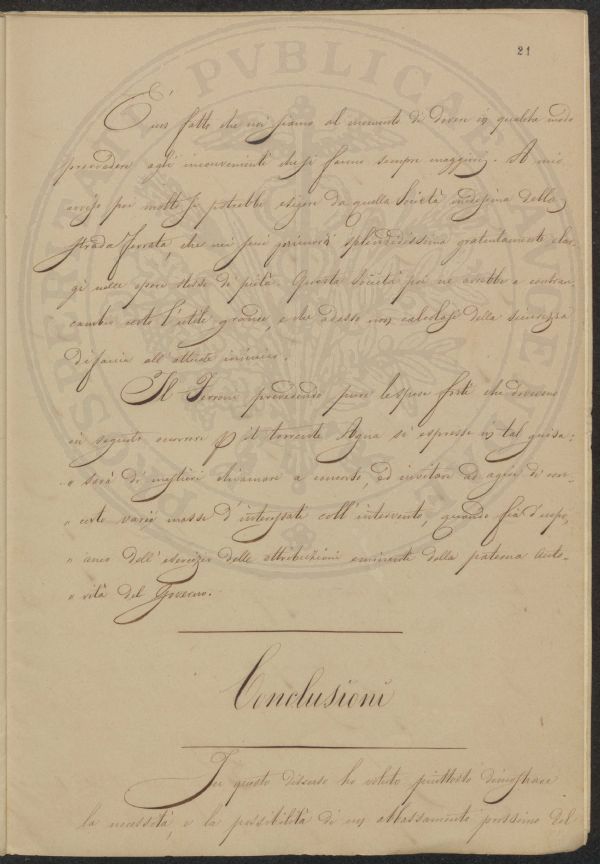 21
È un fatto che noi siamo al momento di dovere in qualche modo
provvedere agli inconvenienti che si fanno sempre maggiori. A mio
avviso per molto si potrebbe esigere da quella Società medesima della
strada ferrata, che nei suoi primordi splendidissima gratuitamente elar-
gì nelle opere stesse di pietà. Questa Società poi ne avrebbe a contrac-
cambio certo l'utile grande, e che adesso non calcolasi della sicurezza
di faccia all'attuale
Il Ferroni prevedendo pure le spese forti che dovevano
in seguito occorrere p il torrente Agna si espresse in tal guisa:
" sarà di migliori chiamare a concerto, ed invitare ad agire di con-
" certo varie masse d'interessati coll'intervento, quando fia d'uopo,
" anco dell'esercizio delle attribuzioni eminenti della paterna auto-
" rità del Governo.
Conclusioni
In questo discorso ho voluto piuttosto dimostrare
la necessità, e la possibilità di un abbassamento prossimo del
PVBLICA